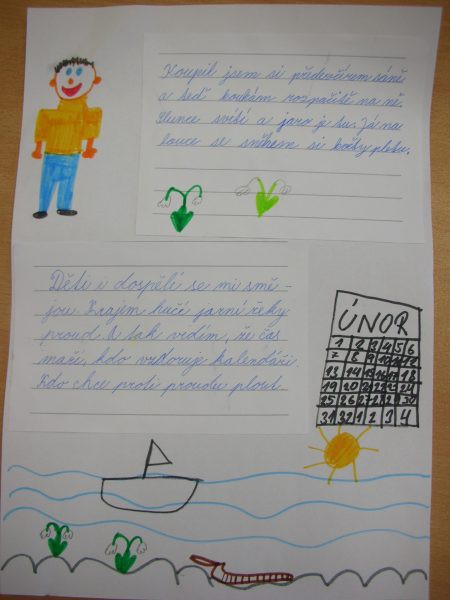 Koupil jsem si předevčírem sáně
a teď koukám rozpačitě na ně.
Slunce svítí a jaro je tu. Já na
louce se sněhem si kočky pletu.
Děti i dospělí se mi smě-
jou. Krajem hučí jarní řeky
proud. A tak vidím, že čas
maří, kdo vzdoruje kalendáři.
Kdo chce proti proudu plout.
ÚNOR
1 2 3 4 5 6
7 8 9 10 11 12
13 14 15 16 17 18
19 20 21 22 23 24
25 26 27 28 29 30
31 32 1 2 3 4